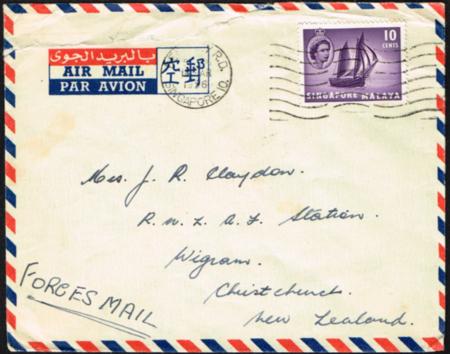 بالبريد الجوي
AIR MAIL
PAR AVION
空郵
P.O.
SINGAPORE 10.
10
CENTS
SINGAPORE MALAYA
Mrs. J. R. Claydon.
R. N. Z. A. F Station.
Wigram.
Christchurch.
New Zealand.
FORCES MAIL